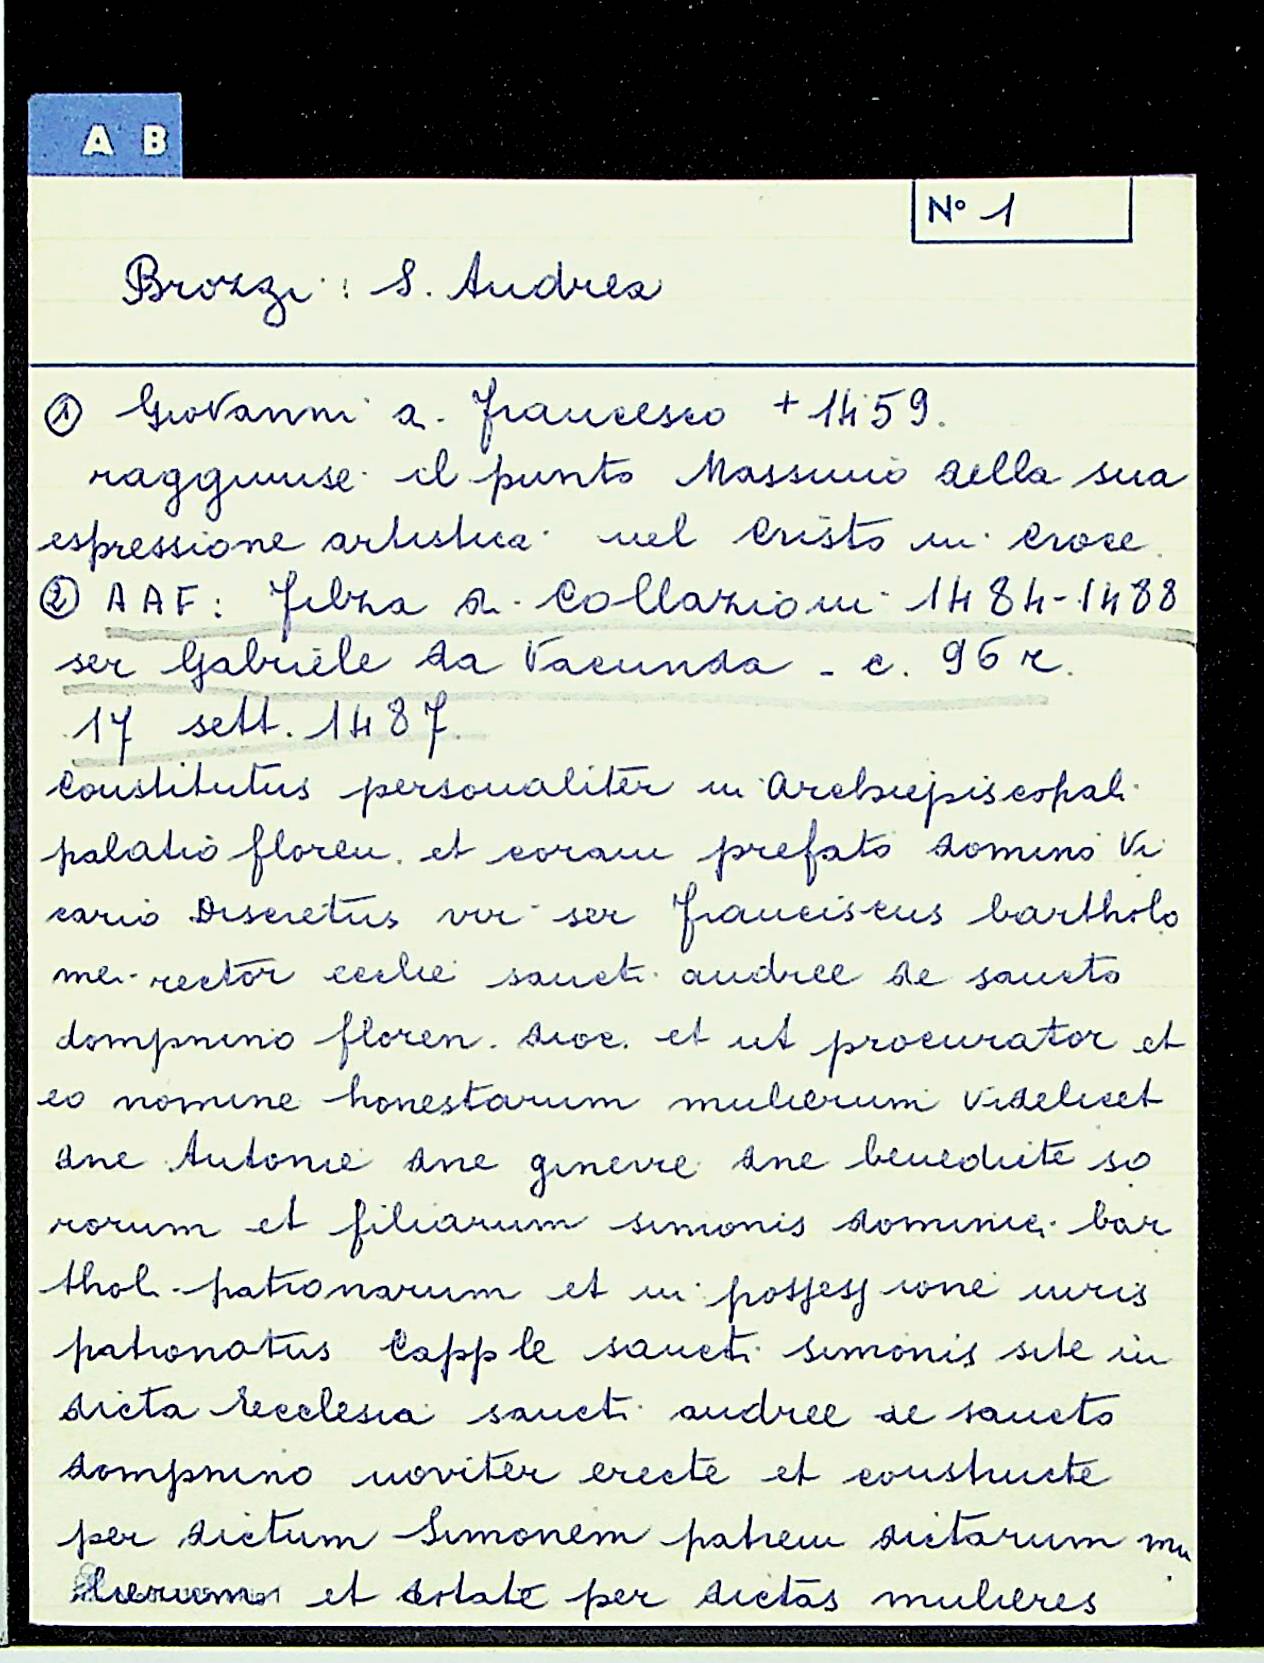 A B
N° 1
Brozzi: S. Andrea
① Giovanni d. Francesco + 1459.
raggiunse il punto Massimo della sua
espressione artistica nel Cristo in Croce.
② AAF: Filza di Collazioni 1484-1488
ser Gabriele da Vacunda - c. 96 r.
17 sett. 1487.
Constitutus personaliter in Archiepiscopali
palatio floren. et coram prefato domino Vi
cario Discretus vir ser Franciscus bartholo
mei rector ecclie sancti andree de sancto
dompnino floren. dioc. et ut procurator et
eo nomine honestarum mulierum videlicet
dne Antonie dne ginevre dne benedicte so
rorum et filiarum simonis dominici bar
tholi patronarum et in possessione iuris
patronatus Capple sancti simonis site in
dicta Ecclesia sancti andree de sancto
dompnino noviter erecte et constructe
per dictum Simonem patrem dictarum mu
lierum et dotate per dictas mulieres